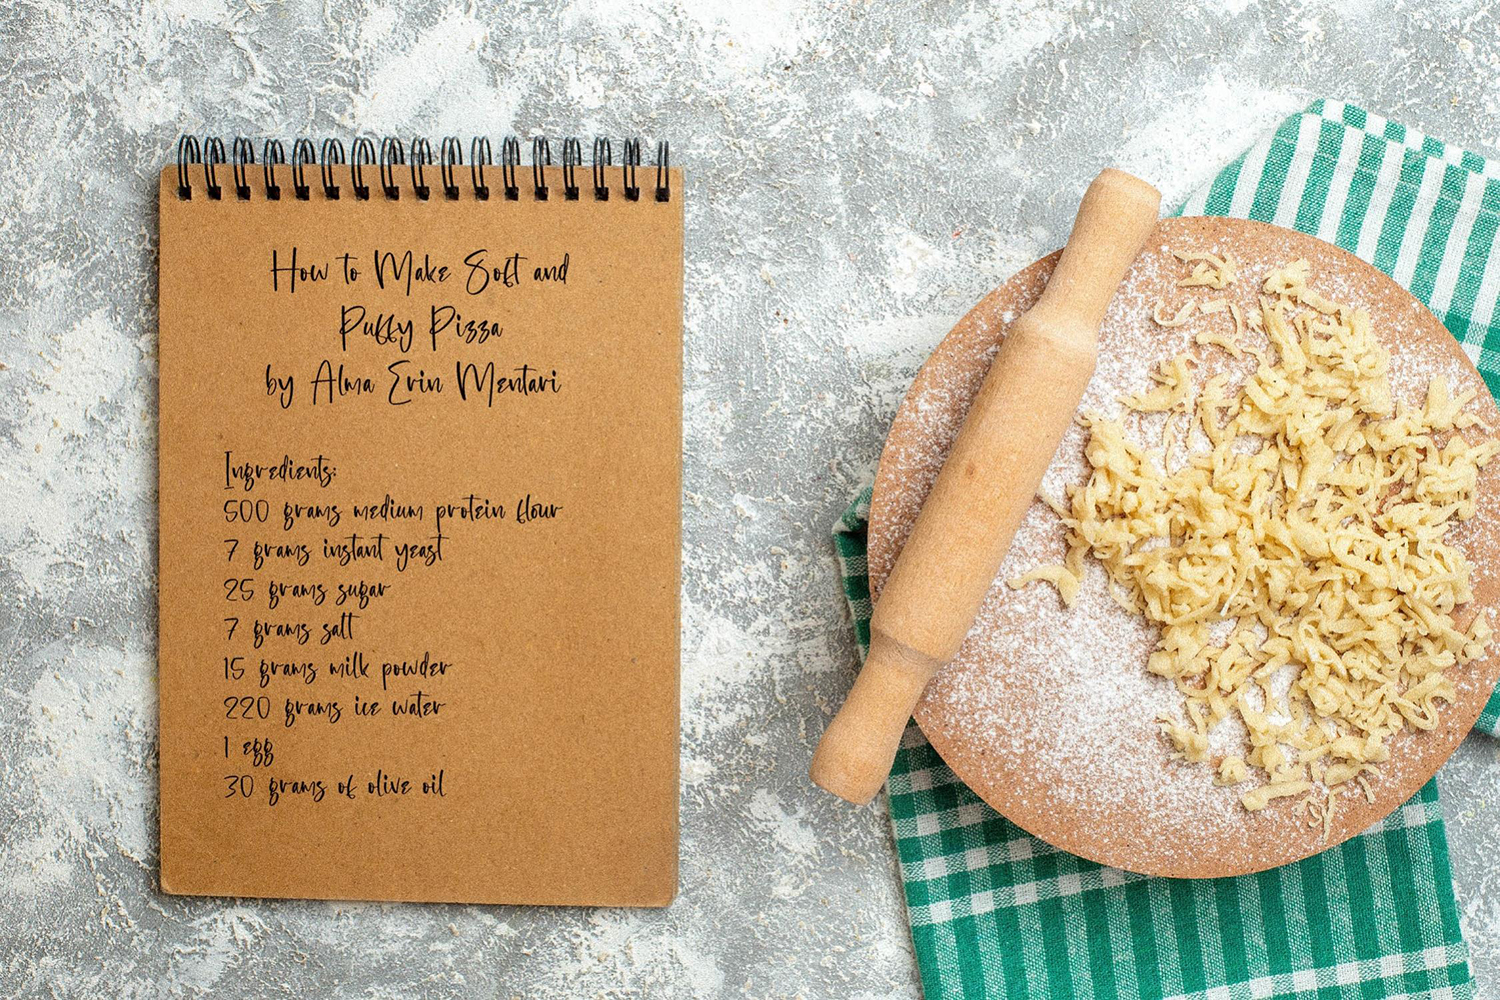 How to Make Soft and
Puffy Pizza
by Alma Erin Mentari
Ingredients:
500 grams medium protein flour
7 grams instant yeast
25 grams sugar
7 grams salt
15 grams milk powder
220 grams ice water
1 egg
30 grams of olive oil